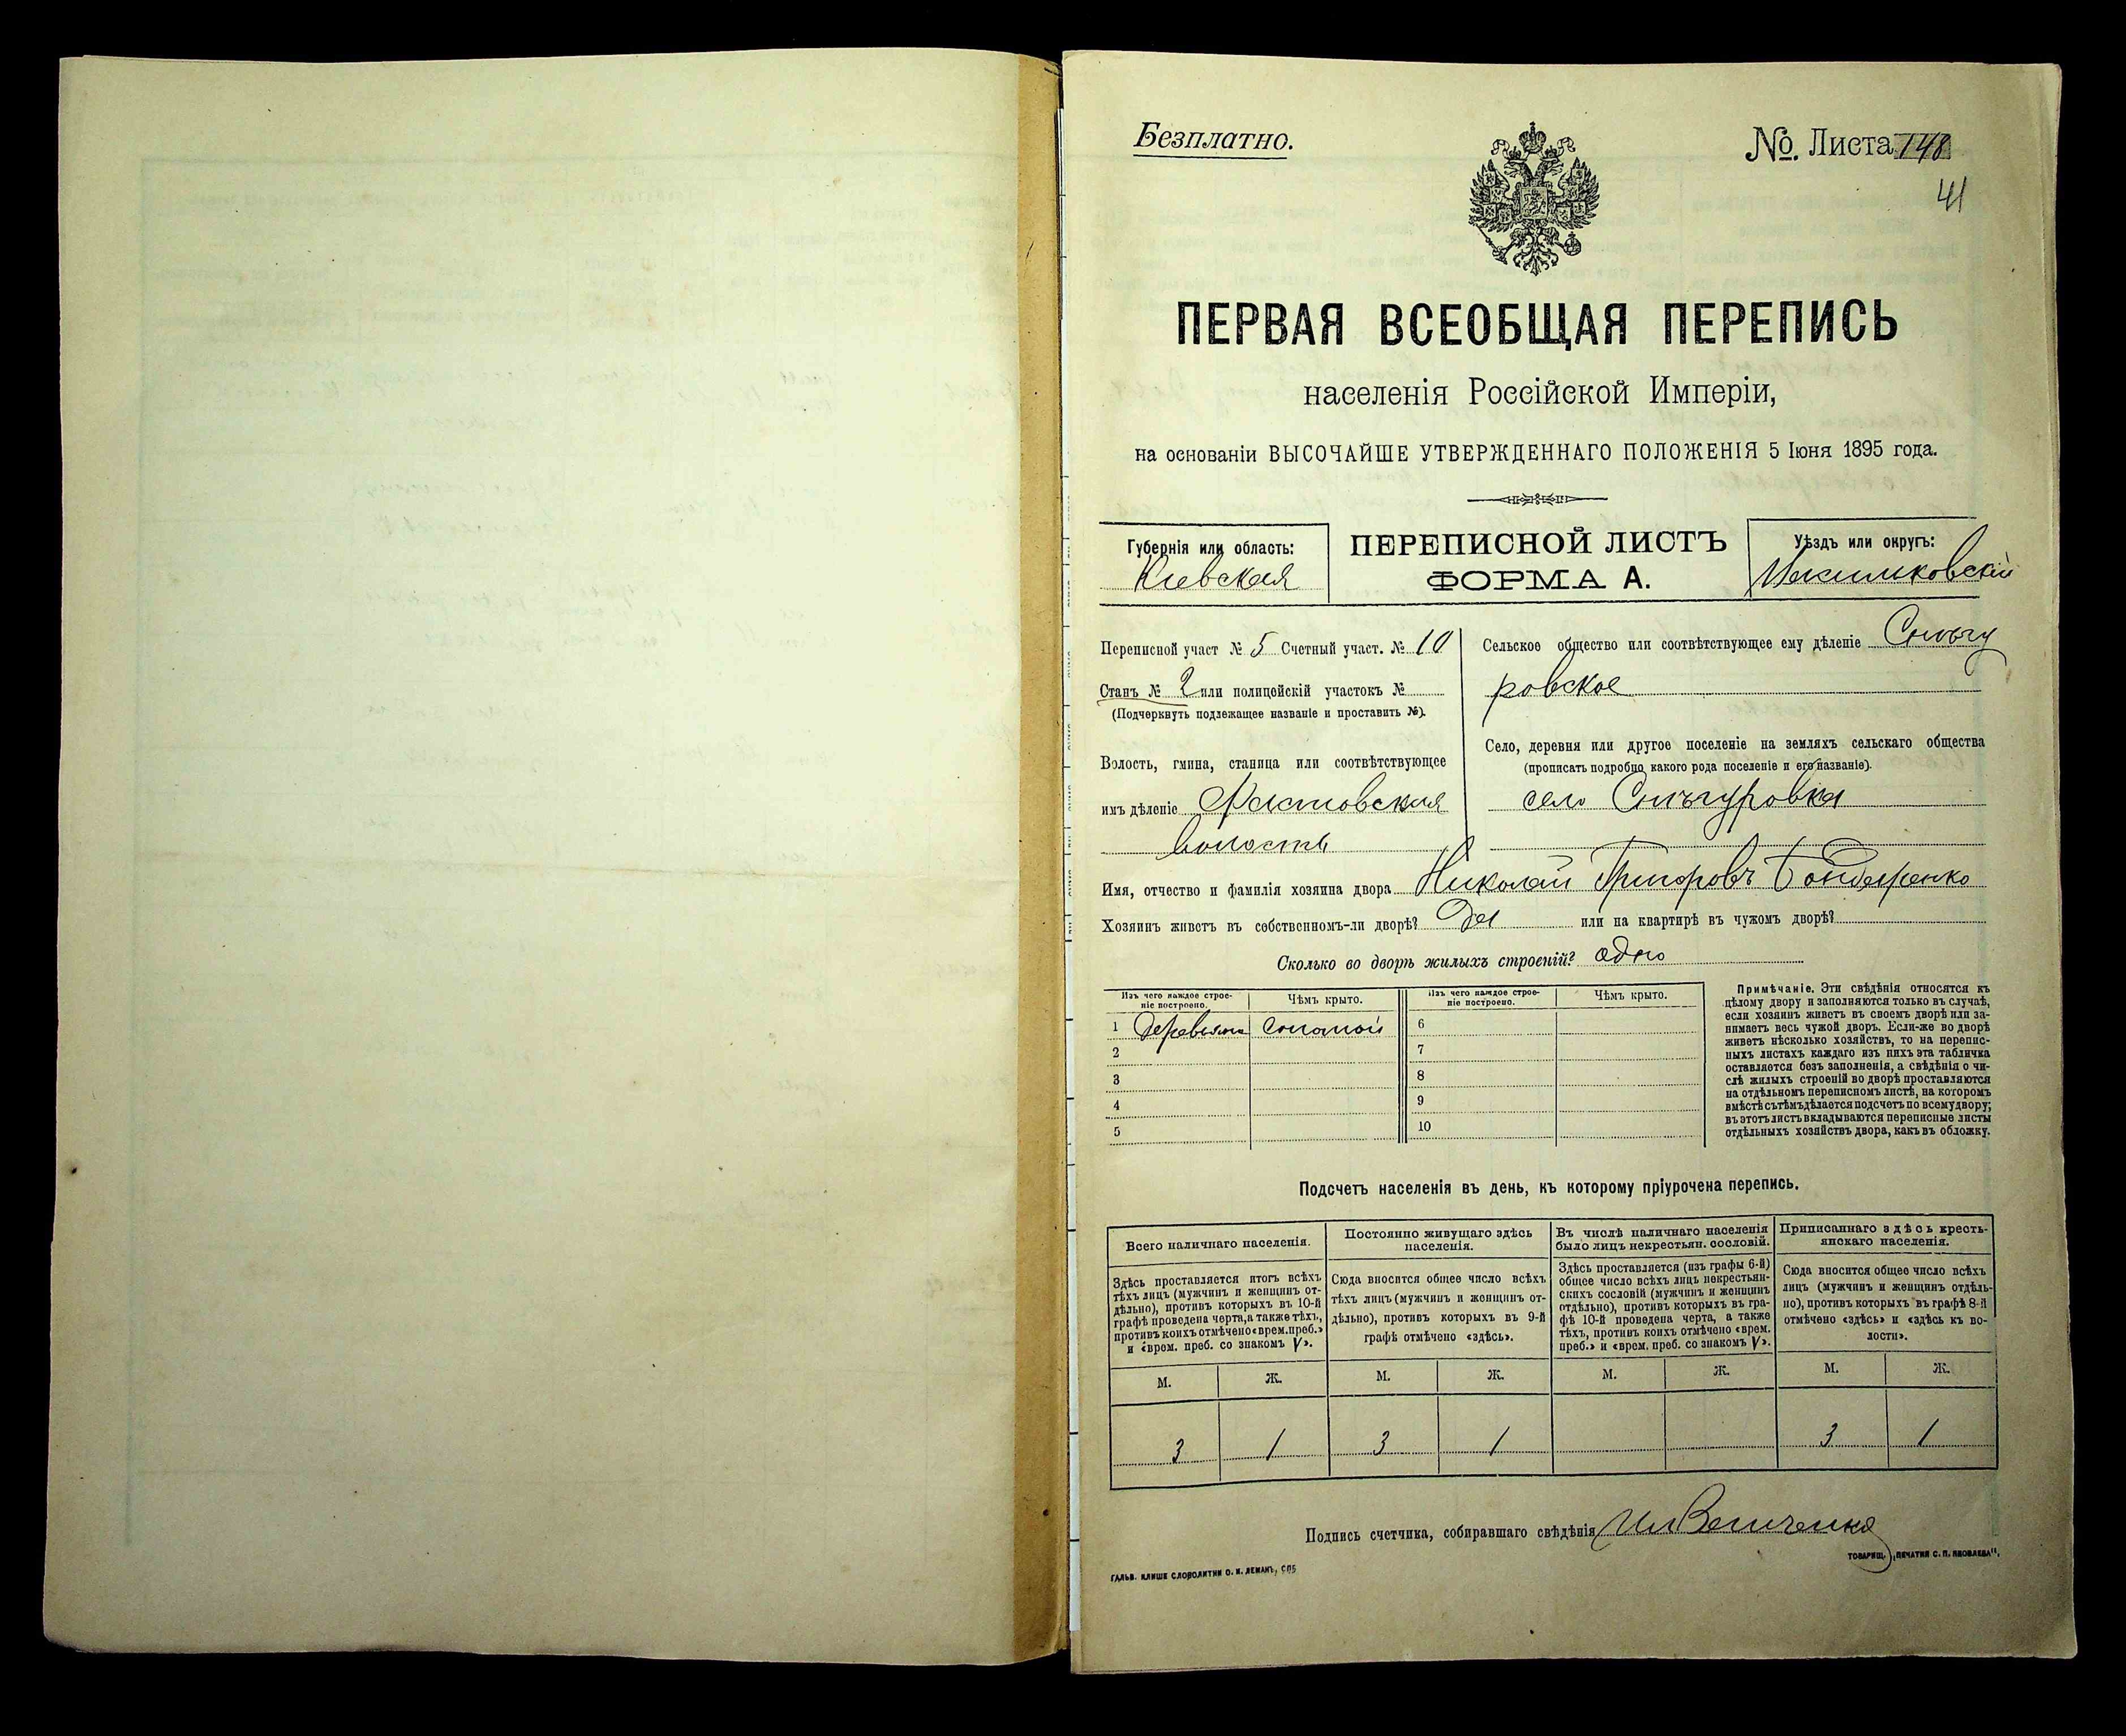 Безплатно.
№. Листа 148
41
ПЕРВАЯ ВСЕОБЩАЯ ПЕРЕПИСЬ
населенія Россійской Имперіи,
на основаніи ВЫСОЧАЙШЕ УТВЕРЖДЕННАГО ПОЛОЖЕНІЯ 5 Іюня 1895 года.
Губернія или область:
Кіевская
ПЕРЕПИСНОЙ ЛИСТЪ
ФОРМА А.
Уѣздъ или округъ:
Васильковскій
Переписной участ № 5 Счетный участ. № 10
Станъ № 2 или полицейскій участокъ №
(Подчеркнуть подлежащее названіе и проставить №).
Волость, гмина, станица или соотвѣтствующее
имъ дѣленіе Фастовская
волость
Сельское общество или соотвѣтствующее ему дѣленіе Снѣгу
ровское
Село, деревня или другое поселеніе на земляхъ сельскаго общества
(прописать подробно какого рода поселеніе и его названіе).
село Снѣгуровка
Имя, отчество и фамилія хозяина двора Николай Григоровъ Бондаренко
Хозяинъ живетъ въ собственномъ-ли дворѣ? Да или на квартирѣ въ чужомъ дворѣ?
Сколько во дворѣ жилыхъ строеній? одно
Изъ чего каждое строе-
ніе построено.
Чѣмъ крыто.
Изъ чего каждое строе-
ніе построено.
Чѣмъ крыто.
1 соломой 6
2 7
3 8
4 9
5 10
Примѣчаніе. Эти свѣдѣнія относятся къ
цѣлому двору и заполняются только въ случаѣ,
если хозяинъ живетъ въ своемъ дворѣ или за-
нимаетъ весь чужой дворъ. Если-же во дворѣ
живетъ нѣсколько хозяйствъ, то на перепис-
ныхъ листахъ каждаго изъ нихъ эта табличка
оставляется безъ заполненія, а свѣдѣнія о чи-
слѣ жилыхъ строеній во дворѣ проставляются
на отдѣльномъ переписномъ листѣ, на которомъ
вмѣстѣ съ тѣмъ дѣлается подсчетъ по всему двору;
въ этотъ листъ вкладываются переписные листы
отдѣльныхъ хозяйствъ двора, какъ въ обложку.
Подсчетъ населенія въ день, къ которому пріурочена перепись.
Всего наличнаго населенія.
Здѣсь проставляется итогъ всѣхъ
тѣхъ лицъ (мужчинъ и женщинъ от-
дѣльно), противъ которыхъ въ 10-й
графѣ проведена черта, а также тѣхъ,
противъ коихъ отмѣчено «врем. преб.»
и «врем. преб. со знакомъ V».
Постоянно живущаго здѣсь
населенія.
Сюда вносится общее число всѣхъ
тѣхъ лицъ (мужчинъ и женщинъ от-
дѣльно), противъ которыхъ въ 9-й
графѣ отмѣчено «здѣсь».
Въ числѣ наличнаго населенія
было лицъ некрестьян. сословій.
Здѣсь проставляется (изъ графы 6-й)
общее число всѣхъ лицъ некрестьян-
скихъ сословій (мужчинъ и женщинъ
отдѣльно), противъ которыхъ въ гра-
фѣ 10-й проведена черта, а также
тѣхъ, противъ коихъ отмѣчено «врем.
преб.» и «врем. преб. со знакомъ V».
Приписаннаго здѣсь кресть-
янскаго населенія.
Сюда вносится общее число всѣхъ
лицъ (мужчинъ и женщинъ отдѣль-
но), противъ которыхъ въ графѣ 8-й
отмѣчено «здѣсь» и «здѣсь къ во-
лости».
М. Ж. М. Ж. М. Ж. М. Ж.
3 1 3 1 3 1
Подпись счетчика, собиравшаго свѣдѣнія
ГАЛЬВ. КЛИШЕ СЛОВОЛИТНИ О. И. ЛЕМАНЪ, СПБ
ТОВАРИЩ. „ПЕЧАТНЯ С. П. ЯКОВЛЕВА".